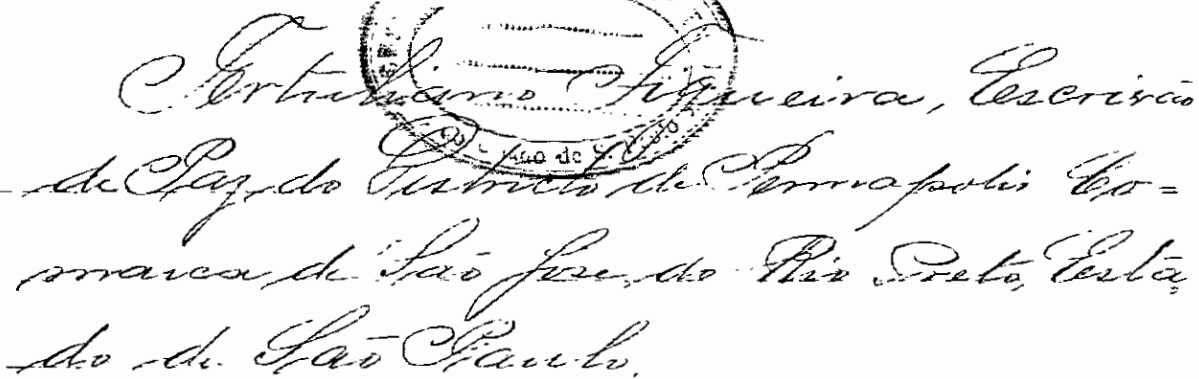 Tertuliano Figueira, Escrivão
de Paz, do Districto de Pennapolis Co=
marca de São Jose, do Rio Preto, Està
do de São Paulo.